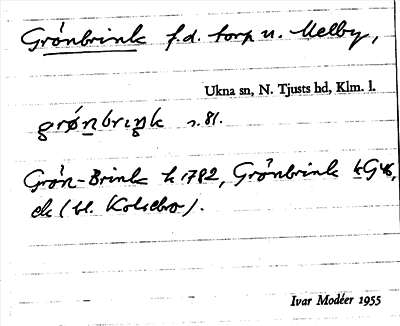 Grönbrink f.d. torp u. Melby,
Ukna sn, N. Tjusts hd, Klm. l.
grǿnbrıŋk s. 81.
Grön-Brink k 1782, Grönbrink
ek (bl. Kolsebro).
Ivar Modéer 1955